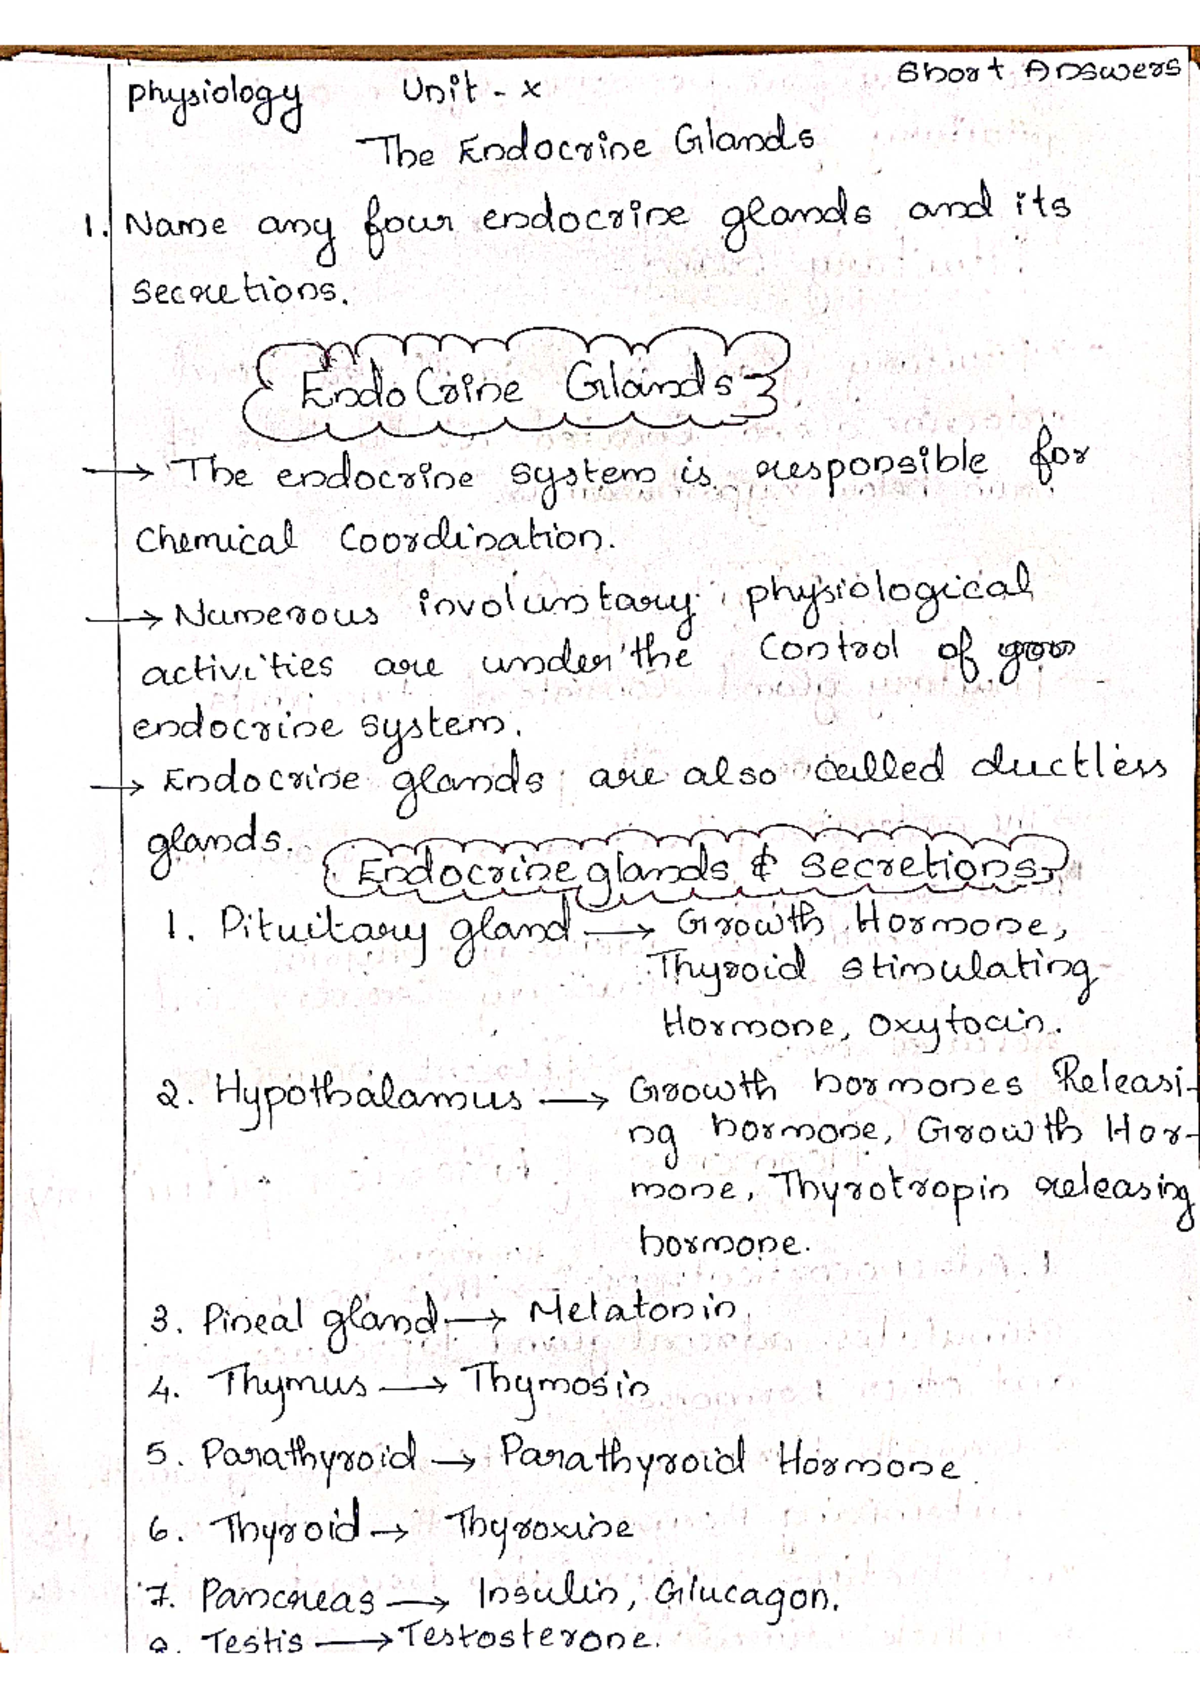 Short Answers
Physiology Unit - X
The Endocrine Glands
1. Name any four endocrine glands and its
secretions.
Endocrine Glands
→ The endocrine system is responsible for
chemical coordination.
→ Numerous involuntary physiological
activities are under the control of
endocrine system.
→ Endocrine glands are also called ductless
glands.
Endocrine glands & secretions
1. Pituitary gland → Growth Hormone,
Thyroid stimulating
Hormone, Oxytocin.
2. Hypothalamus → Growth hormones Releasi-
ng hormone, Growth Hor-
mone, Thyrotropin releasing
hormone.
3. Pineal gland → Melatonin
4. Thymus → Thymosin
5. Parathyroid → Parathyroid Hormone.
6. Thyroid → Thyroxine
7. Pancreas → Insulin, Glucagon.
Testis → Testosterone.